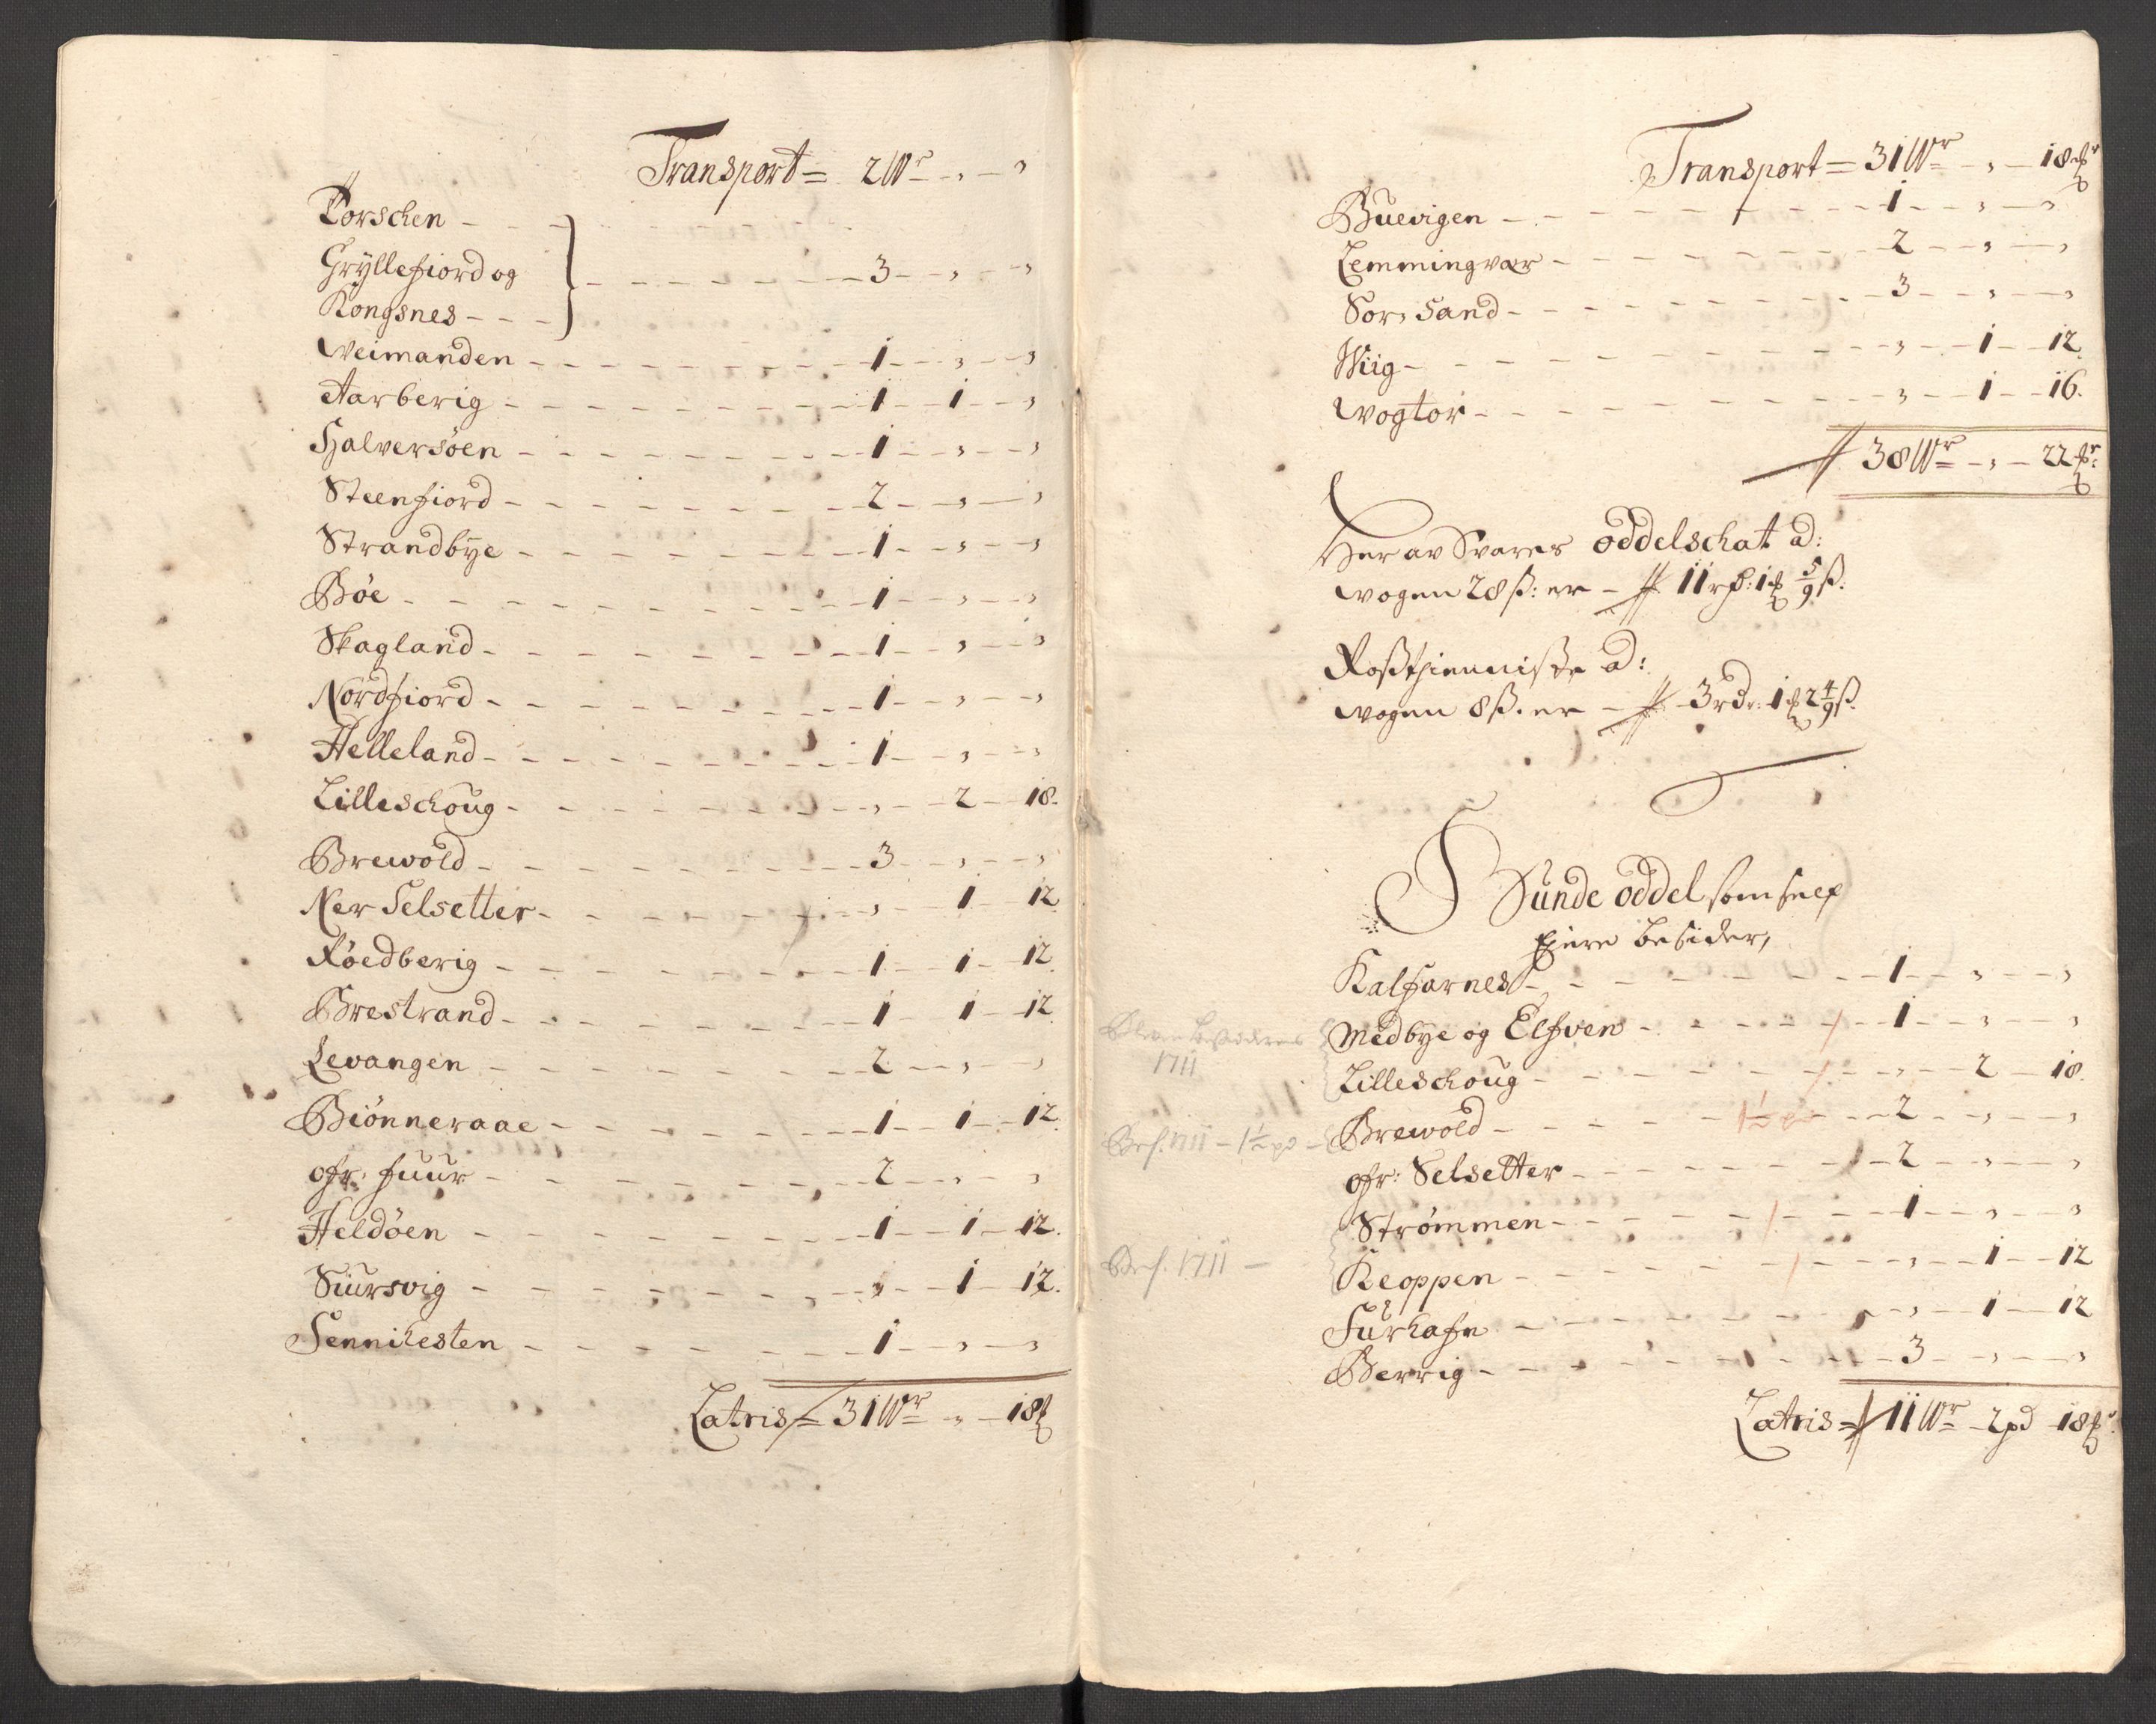 Transport = 2 Wr - „ - „
Torschen - - -
Gryllefiord og - - - - - - - 3 - „ - „
Kongsnes - - -
Weimanden - - - - - - - - 1 - „ - „
Aarberig - - - - - - - - 1 - 1 - „
Halversöen - - - - - - - - 1 - „ - „
Steenfiord - - - - - - - - 2 - „ - „
Strandbye - - - - - - - - 1 - „ - „
Böe - - - - - - - - 1 - „ - „
Skagland - - - - - - - - 1 - „ - „
Nordfiord - - - - - - - - 1 - „ - „
Helleland - - - - - - - - 1 - „ - „
Lilleschoug - - - - - - - - „ - 2 - 18.
Brewold - - - - - - - - 3 - „ - „
Ner Selsetter - - - - - - - - „ - 1 - 12
Röedberig - - - - - - - - 1 - 1 - 12.
Brestrand - - - - - - - - 1 - 1 - 12
Levangen - - - - - - - - 2 - „ - „
Biönneraae - - - - - - - - 1 - 1 - 12.
ofr: fuur - - - - - - - - 2 - „ - „
Heldöen - - - - - - - - 1 - 1 - 12.
Siursvig - - - - - - - - „ - 1 - 12.
Sennikesten - - - - - - - - 1 - „ - „
Latris = 31 Wr - „ - 18 ℔
Transport = 31 Wr - „ - 18 ℔r
Buevigen - - - - - - - - 1 - „ - „
Lemmingvær - - - - - - - - 2 - „ - „
Sör, Sand - - - - - - - - 3 - „ - „
Wiig - - - - - - - - „ - 1 - 12
Wogtör - - - - - - - - „ - 1 - 16.
38 Wr - „ - 22 ℔r:
Her av Svares Oddelschat ad:
wogen 28 ß: er - 11 rd: 1 ℔ 5/9 ß.
Roßthienniste ad:
wogen 8 ß. er - 3 rdr: 1 ℔ 2 4/9 ß.
Bunde oddel som self
Ejere besider,
Kalfarnes - - - - - - - 1 - „ - „
Medbye og Elfven - - - - - 1 - „ - „
1711
Lilleschoug - - - - - - - „ - 2 - 18.
Brewold - - - - 1½ pd - 2 - „ - „
1711 - 1½ pd -
ofr: Selsetter - - - - - - - 2 - „ - „
Strömmen - - - - - - - 1 - „ - „
Keoppen - - - - - - - „ - 1 - 12
1711 -
Furhafn - - - - - - - „ - 1 - 12
Berrig - - - - - - - 3 - „ - „
Latris = 11 Wr - 2 pd 18 ℔r.